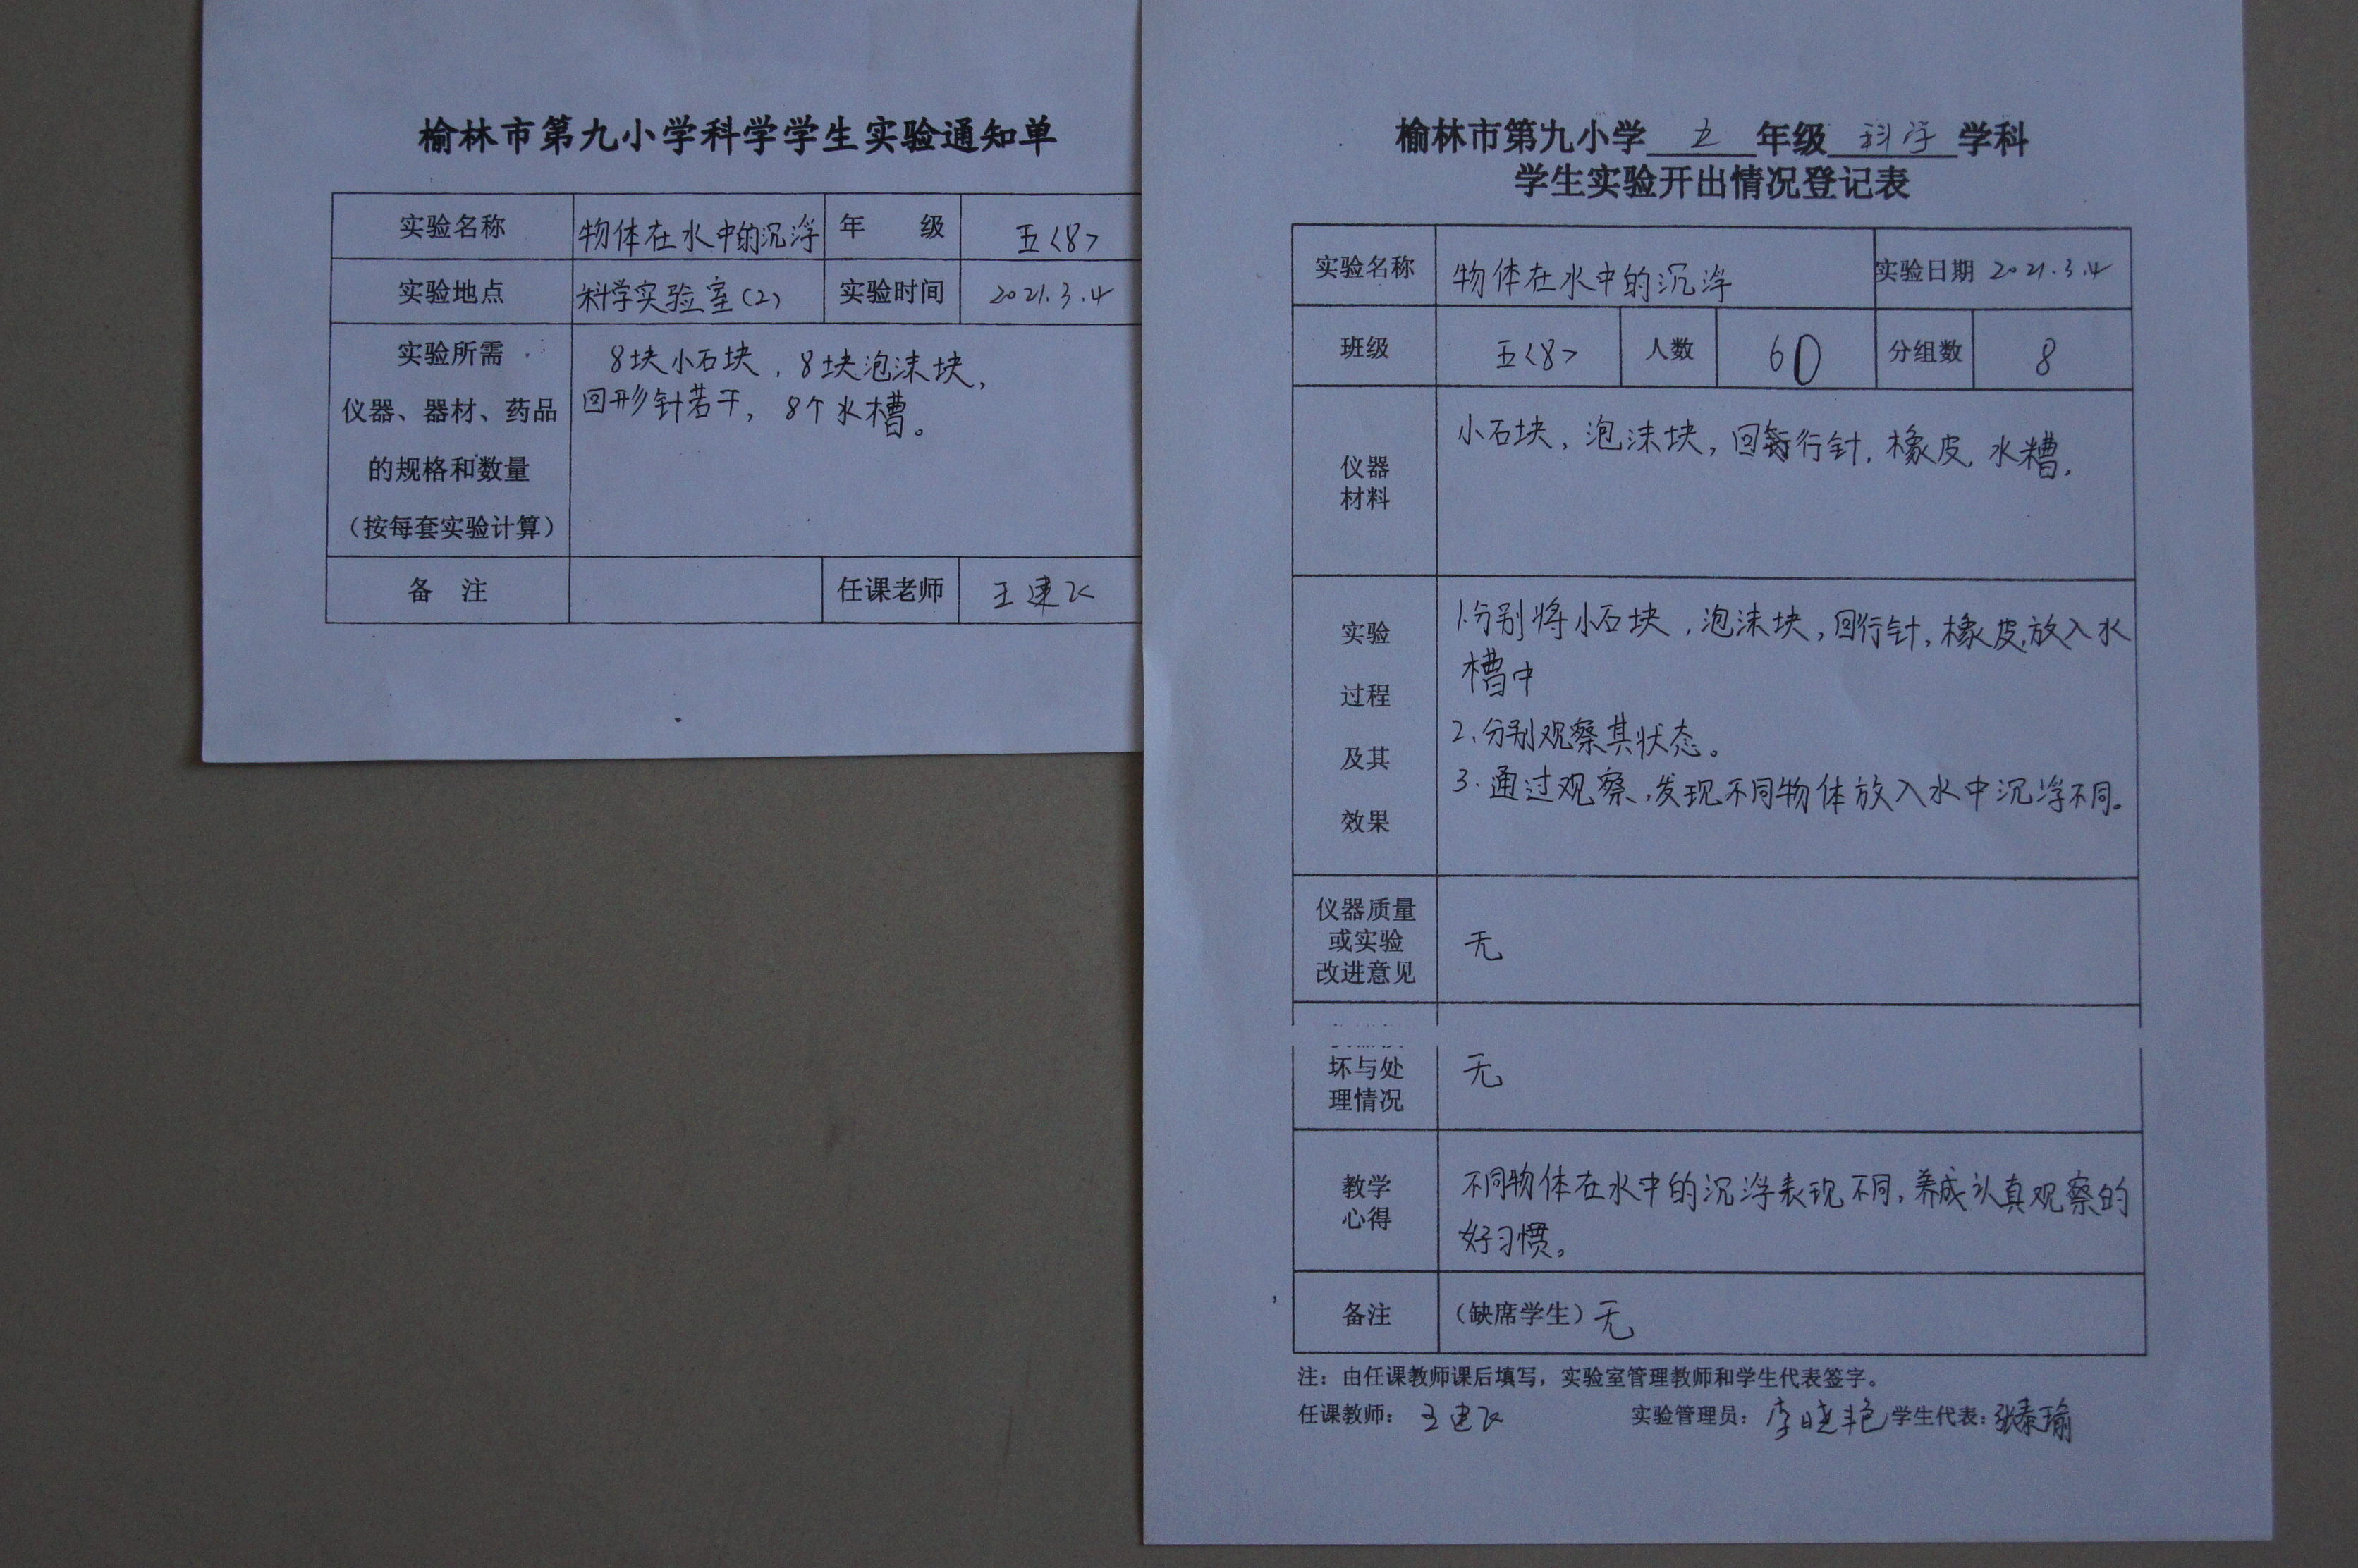 榆林市第九小学科学学生实验通知单
实验名称 物体在水中的沉浮 年 级 五〈8〉
实验地点 科学实验室(2) 实验时间 2021.3.4
实验所需
仪器、器材、药品
的规格和数量
（按每套实验计算）
8块小石块，8块泡沫块，
回形针若干，8个水槽。
备 注 任课老师 王建飞
榆林市第九小学 五 年级 科学 学科
学生实验开出情况登记表
实验名称 物体在水中的沉浮 实验日期 2021.3.4
班级 五〈8〉 人数 60 分组数 8
仪器
材料
小石块，泡沫块，回行针，橡皮，水槽。
实验
过程
及其
效果
1.分别将小石块，泡沫块，回行针，橡皮，放入水
槽中
2、分别观察其状态。
3.通过观察，发现不同物体放入水中沉浮不同。
仪器质量
或实验
改进意见
无
坏与处
理情况
无
教学
心得
不同物体在水中的沉浮表现不同，养成认真观察的
好习惯。
备注 （缺席学生）无
注：由任课教师课后填写，实验室管理教师和学生代表签字。
任课教师： 王建飞 实验管理员：李晓艳 学生代表：张泰瑜